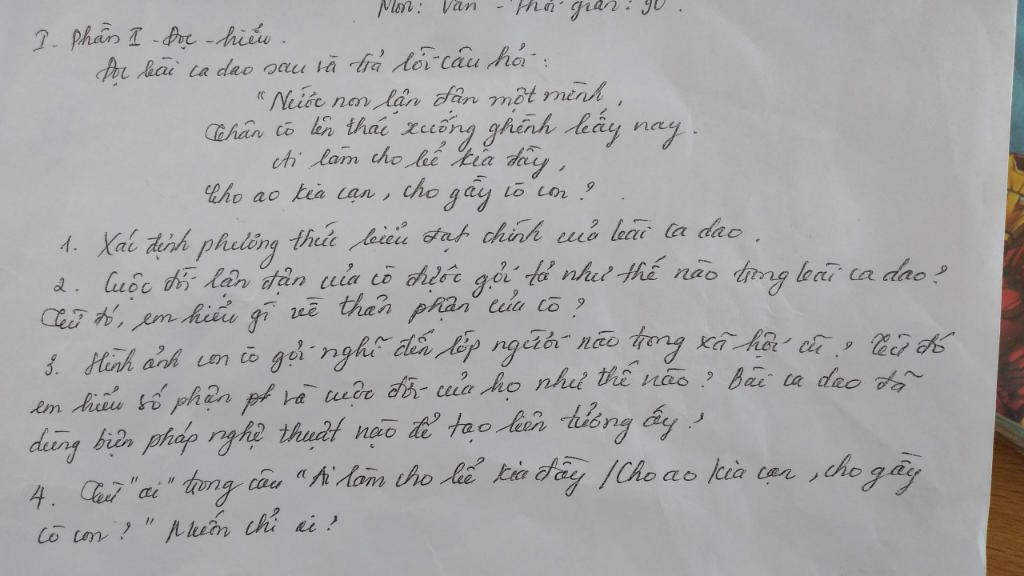 Môn: Văn - Thời gian: 90'.
I. Phần I - Đọc - hiểu.
Đọc bài ca dao sau và trả lời câu hỏi:
"Nước non lận đận một mình,
Thân cò lên thác xuống ghềnh bấy nay.
Ai làm cho bể kia đầy,
Cho ao kia cạn, cho gầy cò con?
1. Xác định phương thức biểu đạt chính của bài ca dao.
2. Cuộc đời lận đận của cò được gợi tả như thế nào trong bài ca dao?
Từ đó, em hiểu gì về thân phận của cò?
3. Hình ảnh con cò gợi nghĩ đến lớp người nào trong xã hội cũ? Từ đó
em hiểu số phận và cuộc đời của họ như thế nào? Bài ca dao đã
dùng biện pháp nghệ thuật nào để tạo liên tưởng ấy?
4. Từ "ai" trong câu "Ai làm cho bể kia đầy / Cho ao kia cạn, cho gầy
cò con?" Muốn chỉ ai?